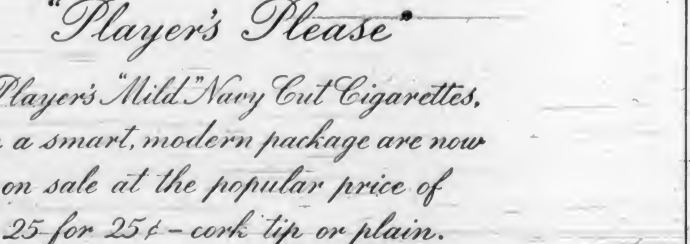 "Player's Please"
Player's "Mild" Navy Cut Cigarettes,
a smart, modern package are now
on sale at the popular price of
25 for 25¢ - cork tip or plain.